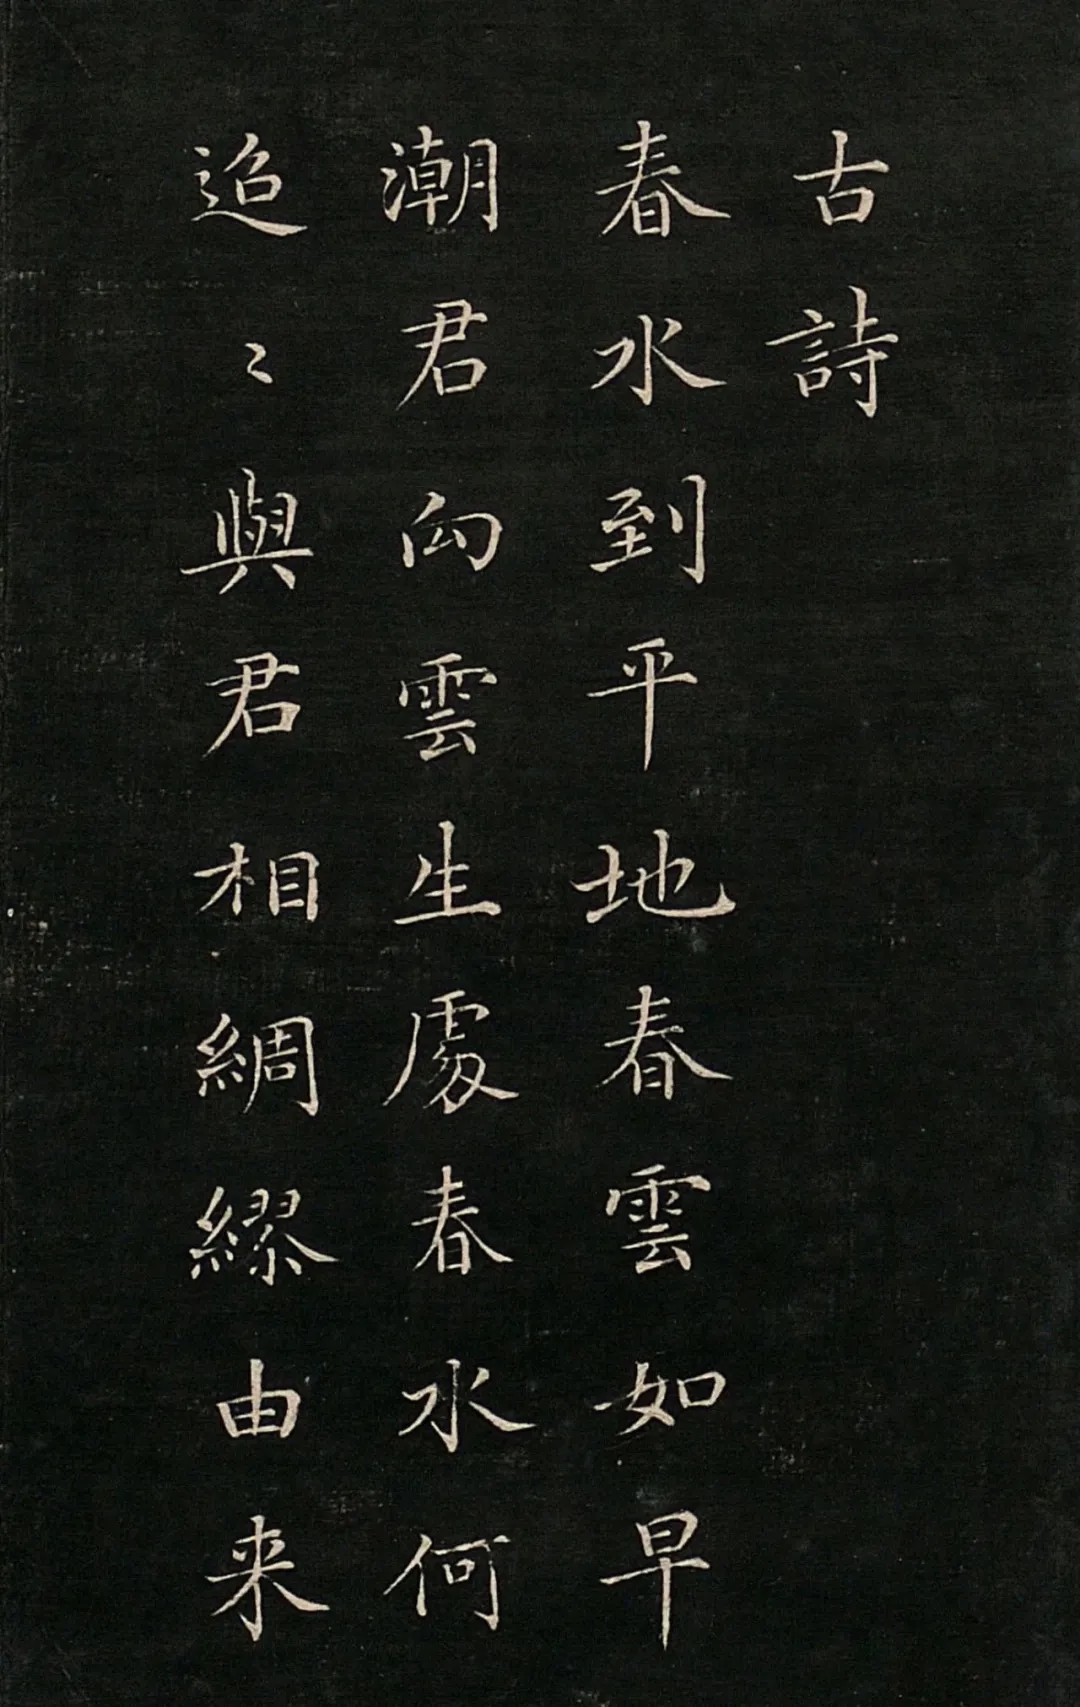 古詩
春水到平地春雲如早
潮君向雲生處春水何
迢〻與君相綢繆由来